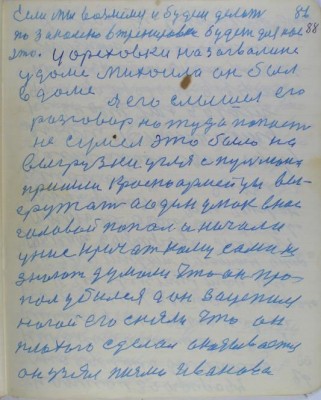 Если мы возмем и будем делать 82
по законно втренировка будет для нас 88
это. У ореховки на завалине
у дома Михоила он был
в доме я его слышел его
разговор но туда попасть
не сумел это было на
выгрузки угля с пульмона
пришли красноармейцы вы-
гружат а один упал вниз
головой попал и начали
у них кричат кому сами не
знают думали что он про-
пол убился а он зацепил
ногой его сняли что он
плохого сделал оказывается
он узял пилю Иванова